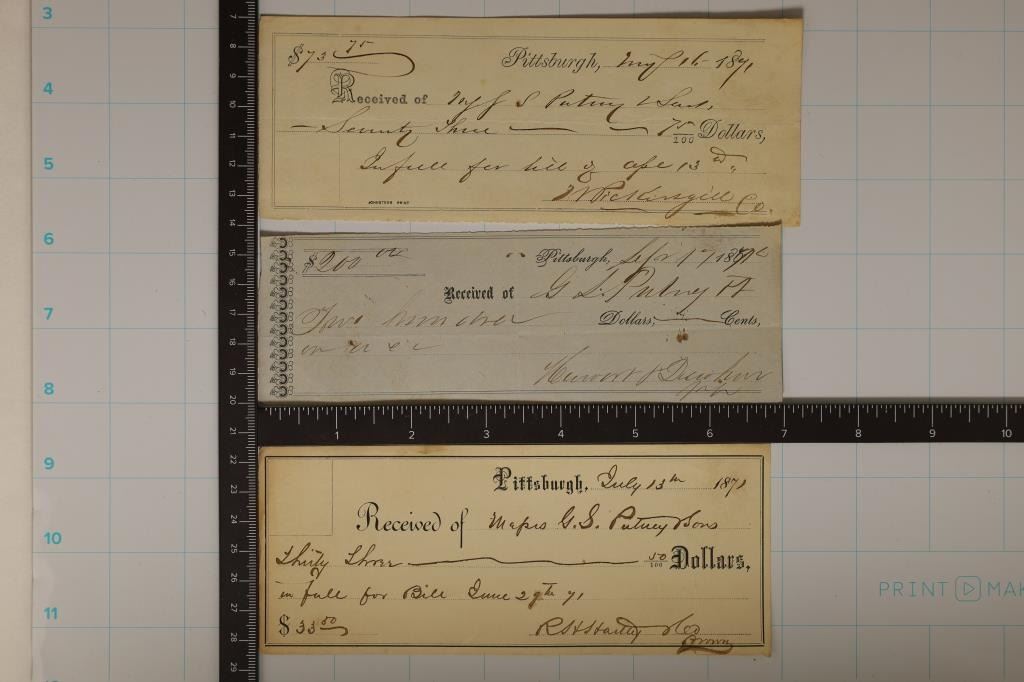 $73 75/ Pittsburgh, 16 1871
Received of G S Putney & Sons,
Seventy Three 75/100 Dollars,
In full for bill of 13
JOHNSTON PRINT
W Pickersgill Co.
$200 00 Pittsburgh, Sept 17 187
Received of G. S. Putney
Two hundred Dollars, Cents,
on
Pittsburgh, July 13th 1871
Received of Messrs G. S. Putney & Sons
Thirty Three 50/100 Dollars,
in full for Bill June 29th 71
$33 50 R H Hartley & Co
Brown
3
4
5
6
7
8
9
10
11
7
8
9
10
11
12
13
14
15
16
17
18
19
20
21
22
23
24
25
26
27
28
29
1 2 3 4 5 6 7 8 9 10
PRINT MAK